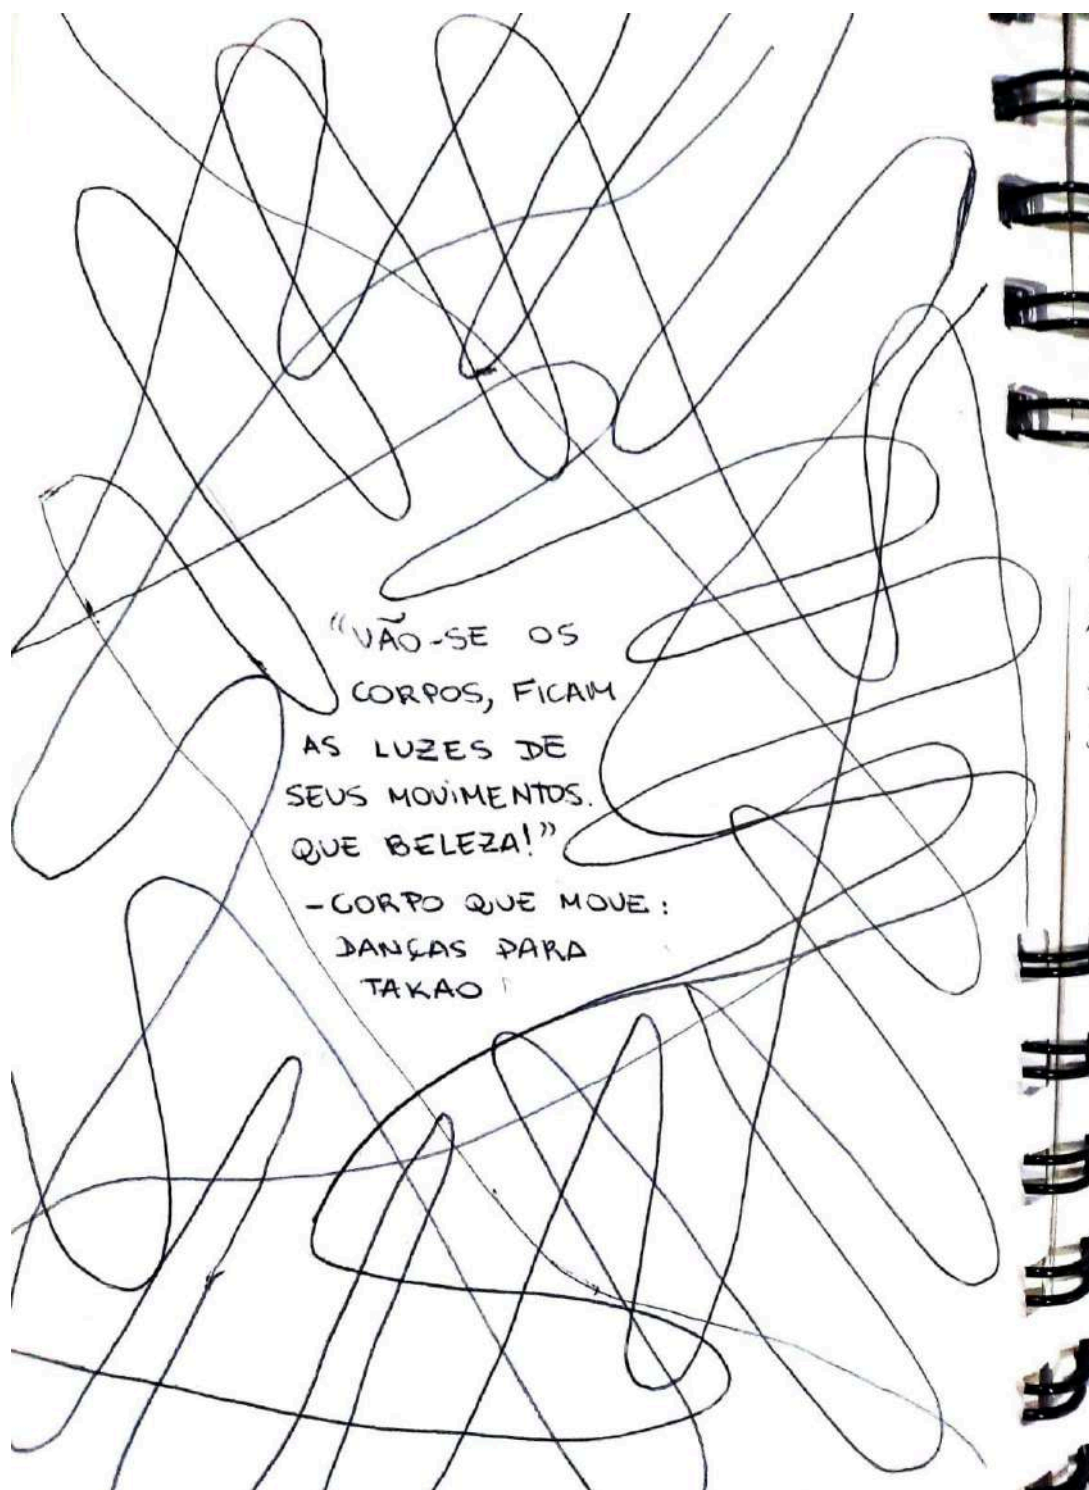 “VÃO-SE OS
CORPOS, FICAM
AS LUZES DE
SEUS MOVIMENTOS.
QUE BELEZA!”
- CORPO QUE MOVE:
DANÇAS PARA
TAKAO